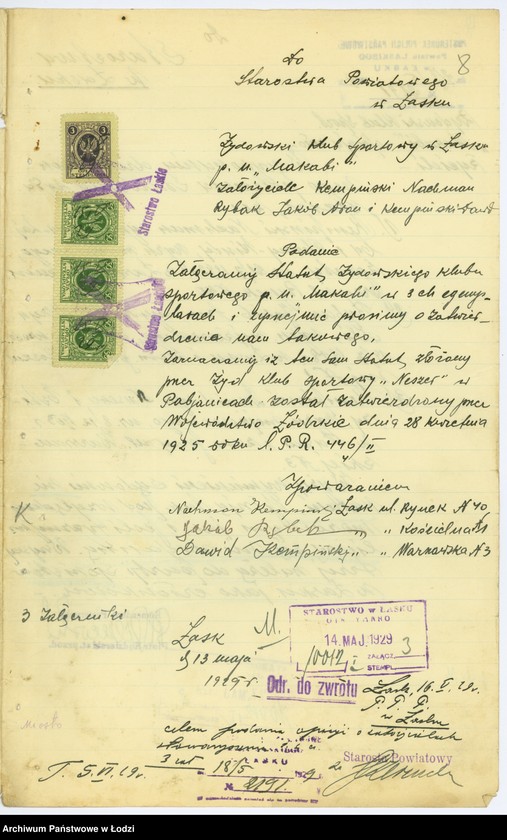 8
Do
Starostwa Powiatowego
w Łasku
Żydowski klub Sportowy w Łasku
p. n. „Makabi”
założyciele Kempiński Nachman
Rybak Jakób i Kempiński Dawid
Starostwo Łaskie
Podanie
Załączamy Statut Żydowskiego klubu
sportowego p. n. Makabi” w 3 ch egzemp-
larzach i uprzejmie prosimy o zatwier-
dzenie nam takowego.
Zaznaczamy iż ten sam Statut złożony
przez Żyd klub sportowy „Neszer” w
Pabjanicach został zatwierdzony przez
Województwo Łódzkie dnia 28 kwietnia
1925 roku L. P. R. 446/II
Starostwo Łaskie
Z poważaniem
Nachman Kempiński Łask ul. Rynek N 40
Jakób Rybak „ „ Kościelna
Dawid Kempiński „ „ Warszawska N 3
3 Załączniki
Łask
d 13 maja
1929 r
STAROSTWO w ŁASKU
14. MAJ. 1929
10012
ZAŁĄCZ. 3
STEMPL.
Odr. do zwrotu
Łask, 16. V. 29 r.
P. P. P.
w Łasku
celem podania opinji o założycielach
3 zał
18/5 1929
ŁASKU
№ 2191
Starosta Powiatowy
T. 5. VI. 29 r.
Archiwum Państwowe w Łodzi